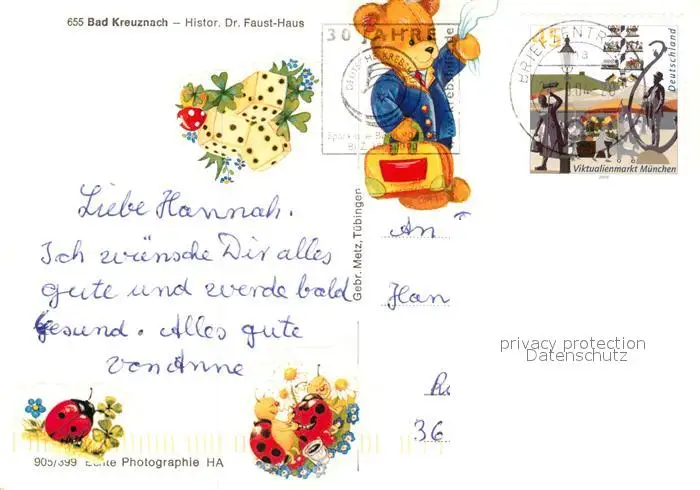 655 Bad Kreuznach – Histor. Dr. Faust-Haus
30 JAHRE
BRIEFZENTR
45
Deutschland
Viktualienmarkt München
Liebe Hannah.
Ich wünsche Dir alles
gute und werde bald
gesund. Alles gute
von Anne
Gebr. Metz, Tübingen
An
Han
36
privacy protection
Datenschutz
905/399 Echte Photographie HA